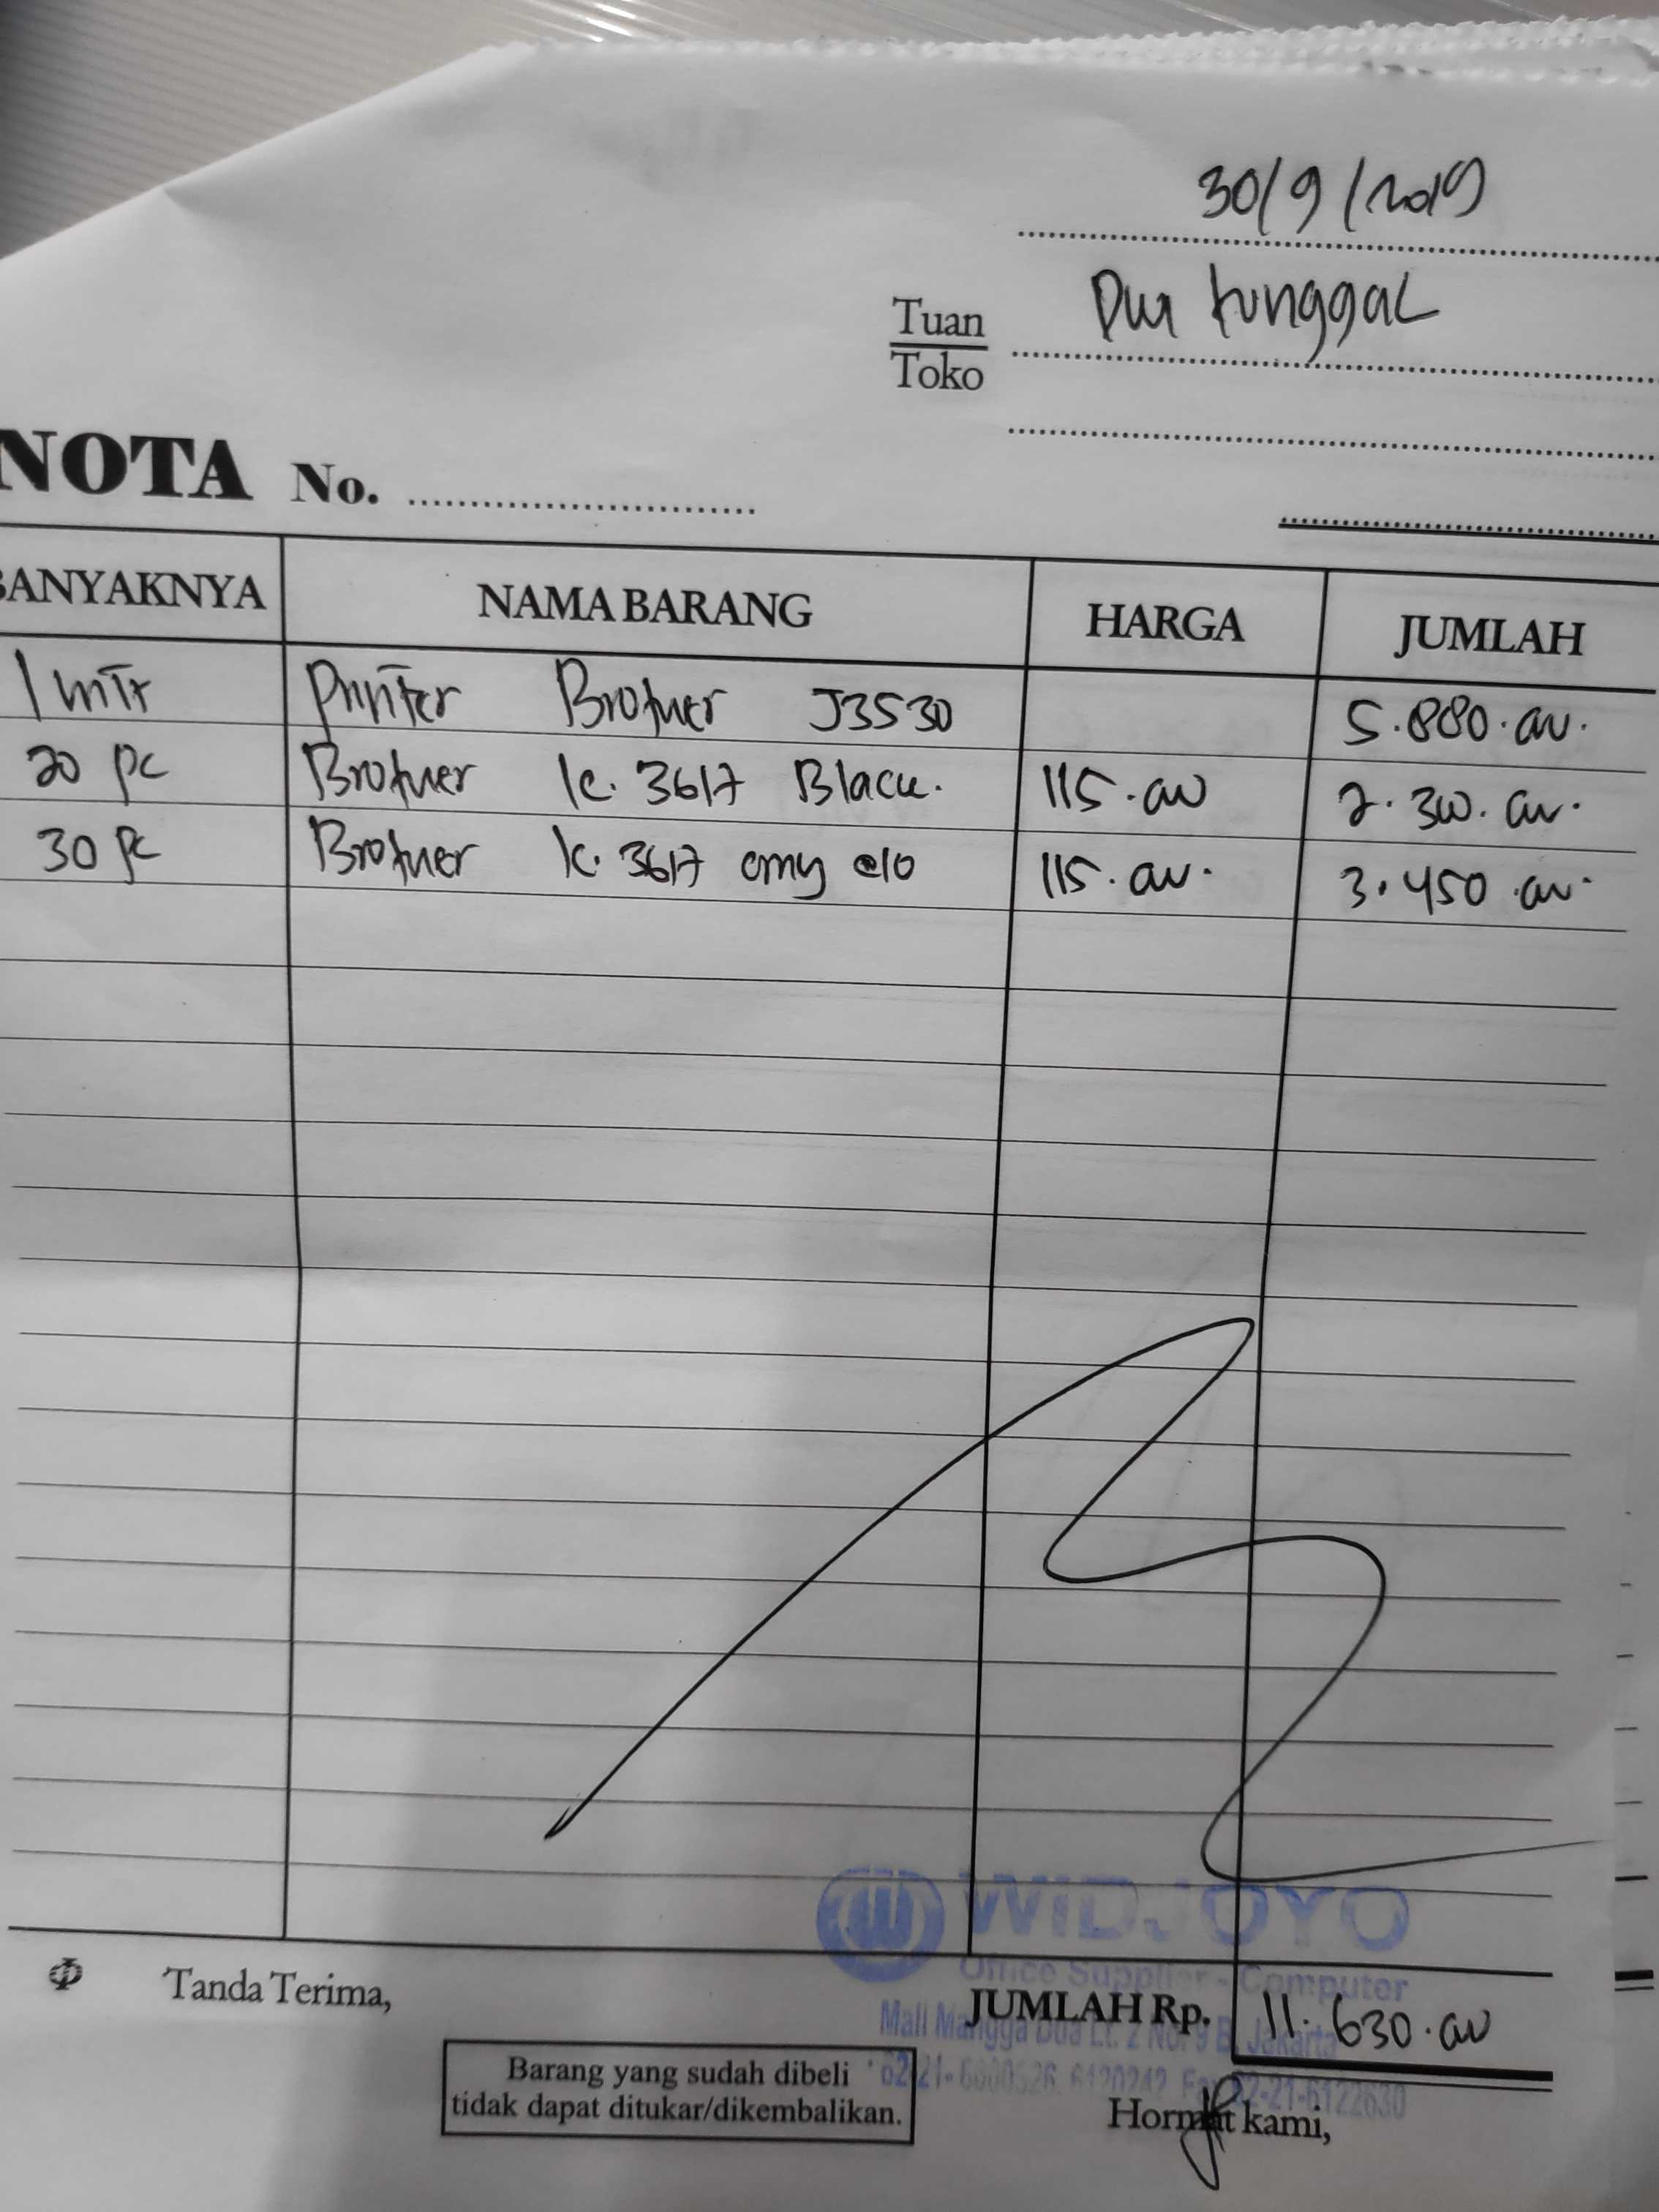 30/9/2019
Tuan
Toko
Dua tunggal
NOTA No.
BANYAKNYA NAMA BARANG HARGA JUMLAH
1 Printer Brother J3530 5.880.000.
20 pc Brother lc. 3617 Black. 115.000 2.300.000.
30 pc Brother lc. 3617 cmy @10 115.000. 3.450.000.
WIDJOYO
Office Supplier - Computer
Mall Mangga Dua Lt. 2 No. 9 B, Jakarta
Fax 62-21-6122630
Tanda Terima,
JUMLAH Rp. 11.630.000
Barang yang sudah dibeli
tidak dapat ditukar/dikembalikan.
Hormat kami,